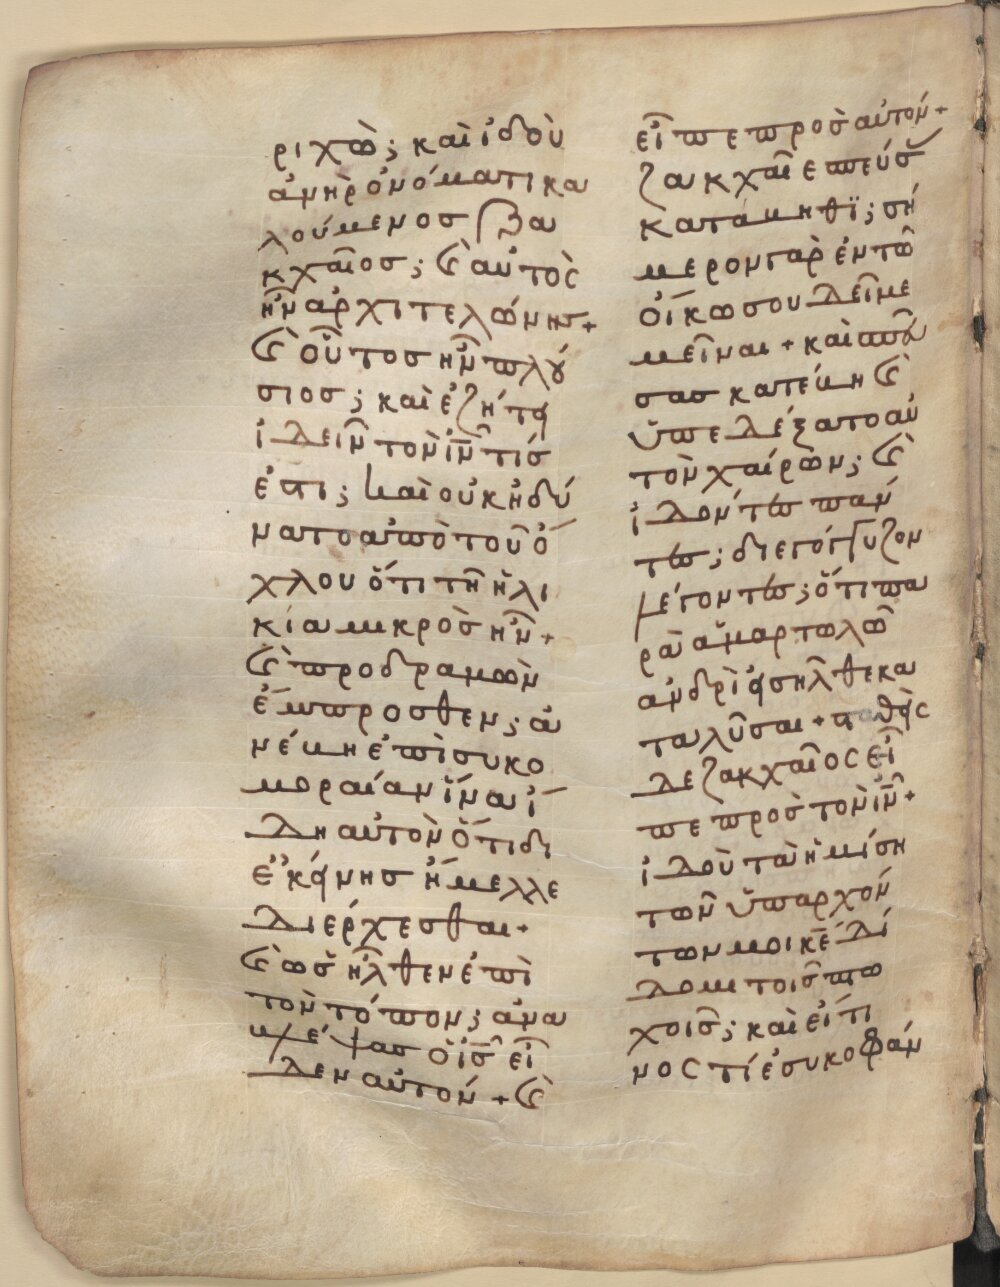 ριχὼ; καὶ ἰδοὺ
ἀνὴρ ὀνόματι κα
λούμενοσ ζα
κχαῖοσ; ϗ̀ αὐτὸς
ἦν ἀρχιτελώνησ+
ϗ̀ οὗτοσ ἦν πλού
σιοσ; καὶ ἐζήτει
ἰδεῖν τὸν ἰ̅ν̅ τίσ
ἐστι; καὶ οὐκ ἠδύ
νατο ἀπὸ τοῦ ὄ
χλου ὅτι τῆ ἡλι
κία μικρὸσ ἦν+
ϗ̀ προδραμὼν
ἔμπροσθεν; ἀ
νέβη ἐπὶ συκο
μοραίαν ἵνα ἴ
δη αὐτὸν ὅτι δι
ἐκείνησ ἤμελλε
διέρχεσθαι+
ϗ̀ ὡσ ἦλθεν ἐπὶ
τὸν τόπον; ἀνα
βλέψασ ὁ ἰ̅σ̅ εἶ
δεν αὐτόν+ ϗ̀
εἶπε πρὸσ αὐτόν+
ζακχαῖε σπεύσ
κατάβηθϊ; σή
μερον γὰρ ἐν τῶ
οἴκω σου δεῖ με
μεῖναι+ καὶ σπεύ
σασ κατέβη ϗ̀
ὑπεδέξατο αὐ
τὸν χαίρων; ϗ̀
ἰδόντεσ πάν
τεσ; διεγόγγυζον
λέγοντεσ; ὅτι πα
ρὰ ἁμαρτωλῶ
ἀνδρὶ εἰσῆλθε κα
ταλῦσαι+ σταθεὶς
δε ζακχαῖος εἶ
πε πρὸσ τὸν ἰ̅ν̅+
ἰδοὺ τὰ ἡμίση
τῶν ὑπαρχόν
των μοι κ̅ε̅ δί
δωμι τοῖσ πτω
χοῖσ; καὶ εἴ τι
νος τί ἐσυκοφάν